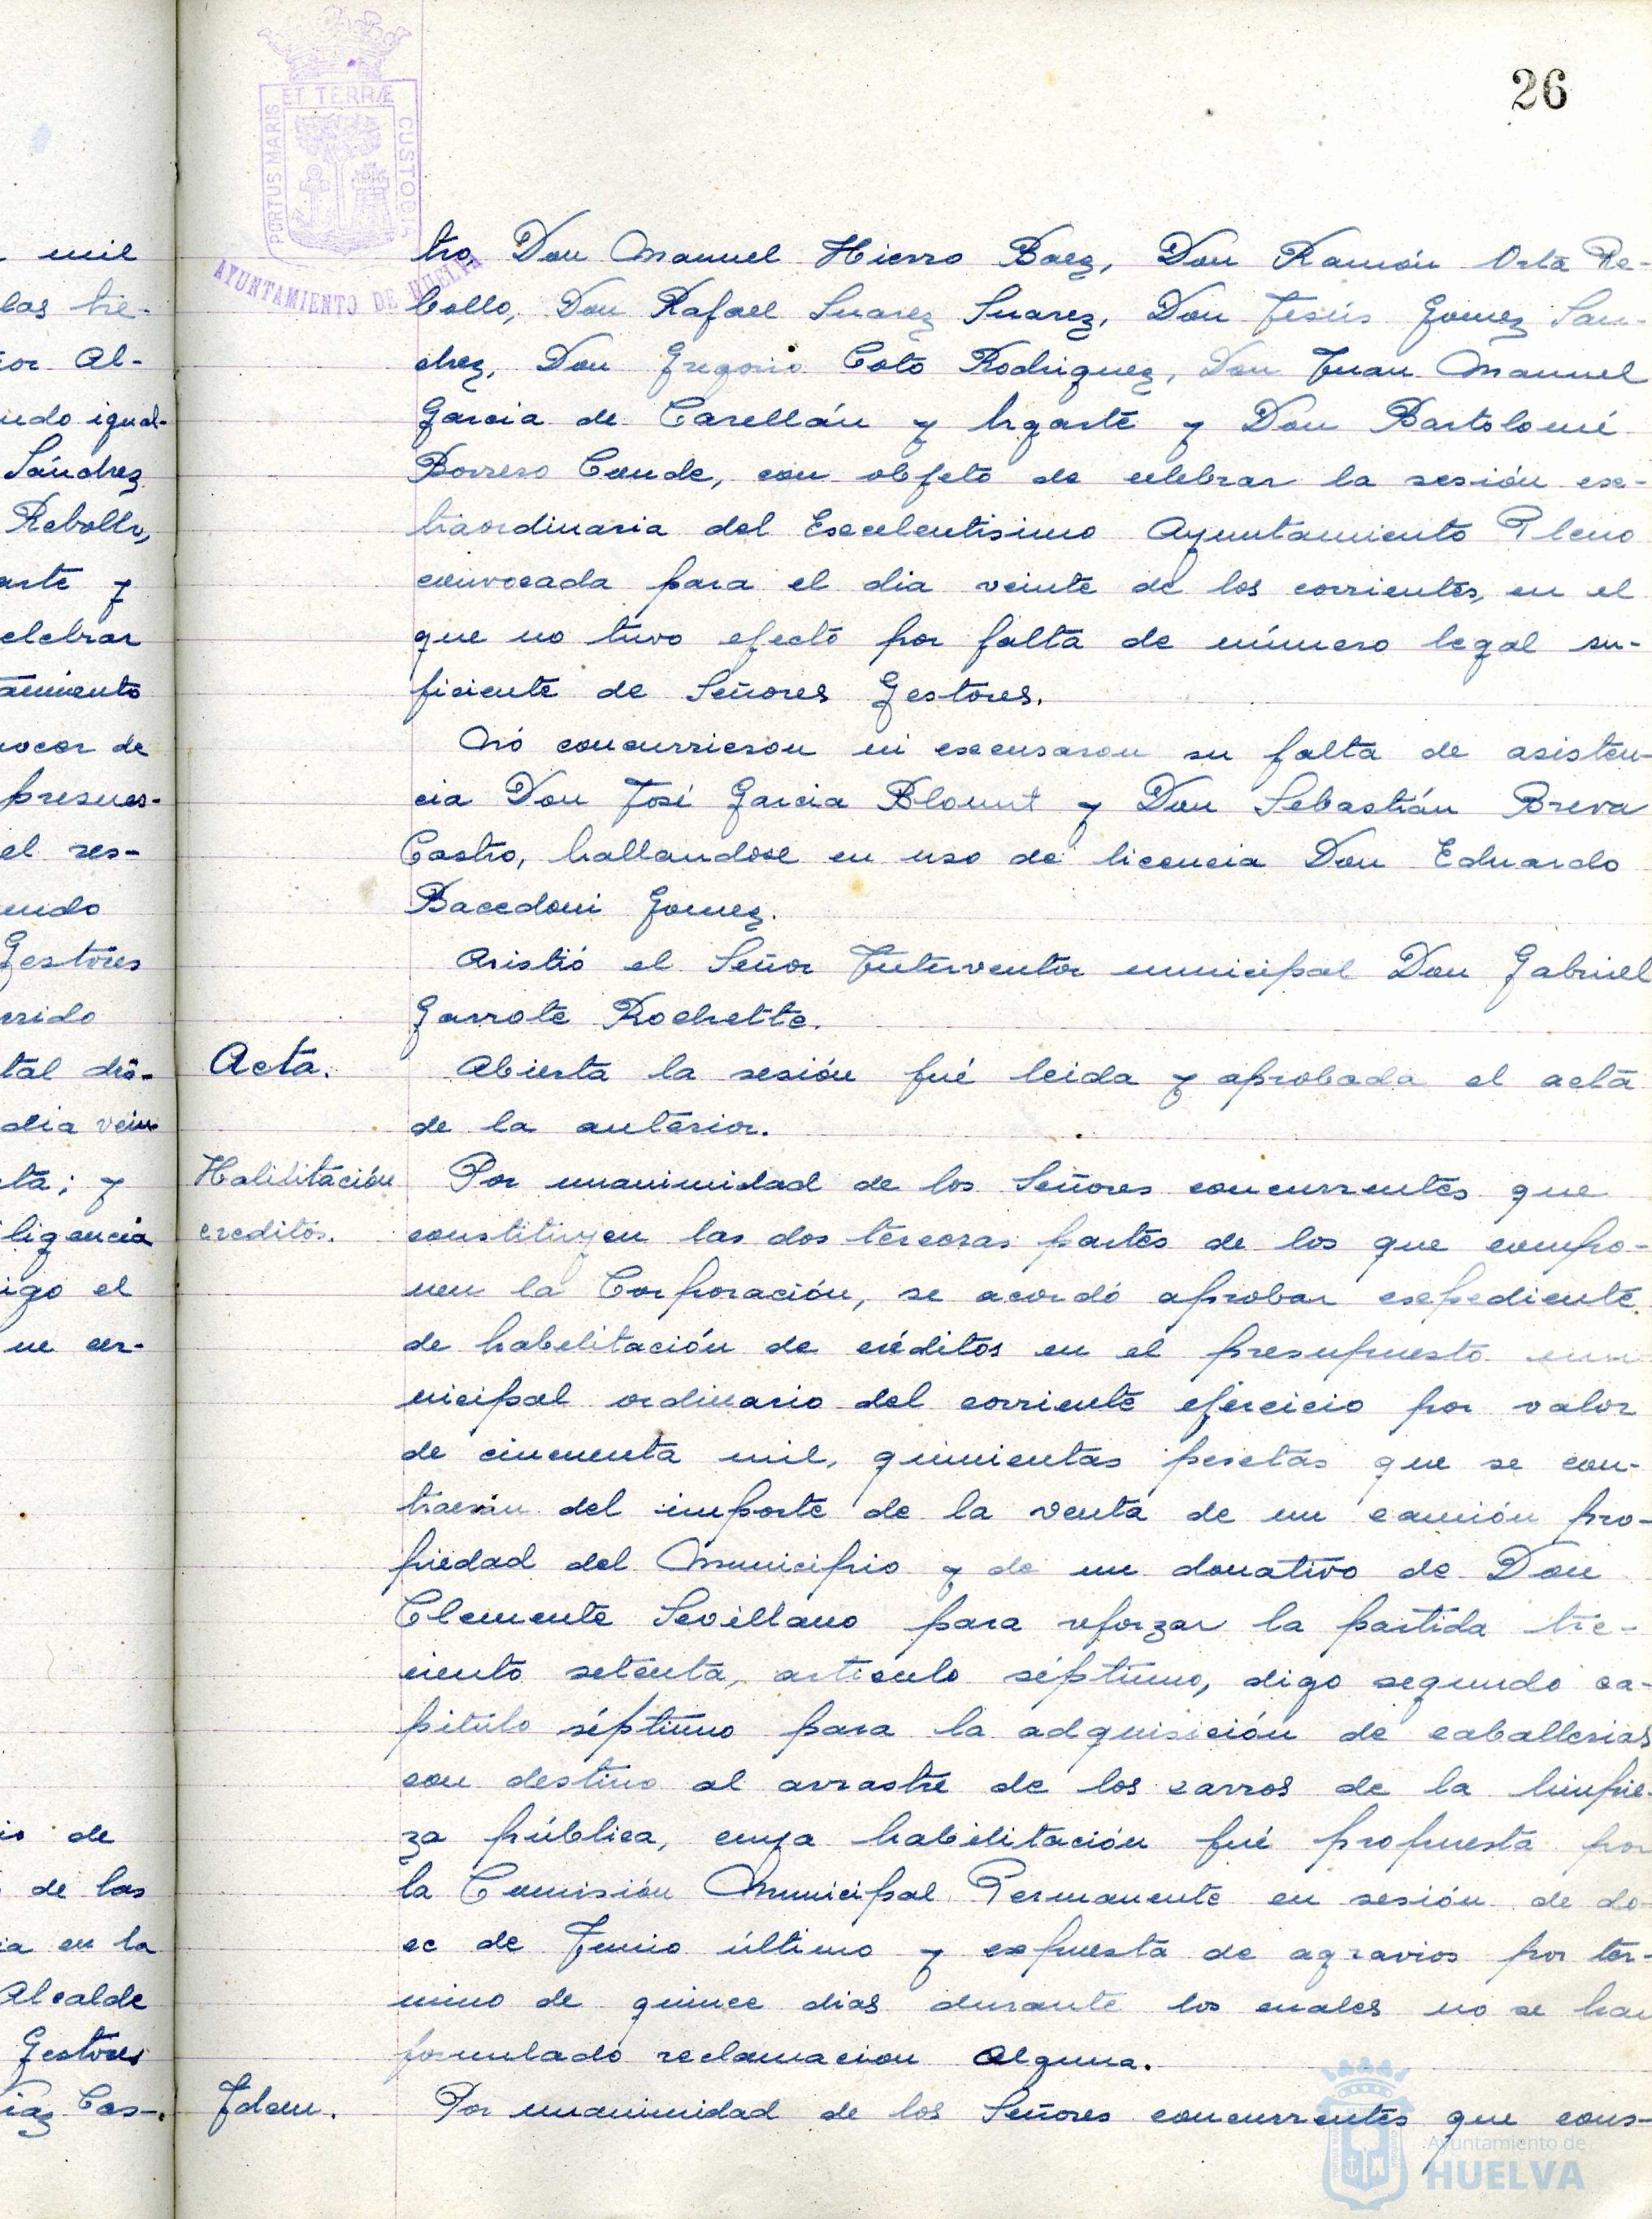 26
PORTUS MARIS ET TERRÆ CUSTODIA
AYUNTAMIENTO DE HUELVA
mil
las tre-
or Al-
ndo igual-
Sánchez
Rebollo,
arte y
elebrar
amiento
ocer de
presues-
el res-
endo
Gestores
rrido
tal
dia vein
ta; y
ligencia
igo el
ue cer-
io de
de las
ia en la
Alcalde
Gestores
íaz Cas-
tro, Don Manuel Hierro Baez, Don Ramón Orta Re-
bollo, Don Rafael Suarez Suarez, Don Jesús Gomez San-
chez, Don Gregorio Coto Rodriguez, Don Juan Manuel
Garcia de Carellán y Ugarte y Don Bartolomé
Borrero Conde, con objeto de celebrar la sesión ex-
traordinaria del Excelentisimo Ayuntamiento Pleno
convocada para el dia veinte de los corrientes, en el
que no tuvo efecto por falta de número legal su-
ficiente de Señores Gestores.
No concurrieron ni excusaron su falta de asisten-
cia Don José Garcia Blount y Don Sebastián Breva
Castro, hallandose en uso de licencia Don Eduardo
Bacedoni Gomez.
Asistió el Señor Interventor municipal Don Gabriel
Garrote Rochette.
Acta.
Abierta la sesión fué leida y aprobada el acta
de la anterior.
Habilitación
creditos.
Por unanimidad de los Señores concurrentes que
constituyen las dos terceras partes de los que compo-
nen la Corporación, se acordó aprobar expediente
de habilitación de créditos en el presupuesto mu-
nicipal ordinario del corriente ejercicio por valor
de cincuenta mil, quinientas pesetas que se con-
traerán del importe de la venta de un camión pro-
piedad del Municipio y de un donativo de Don
Clemente Sevillano para reforzar la partida tre-
ciento setenta, artículo séptimo, digo segundo ca-
pitulo séptimo para la adquisición de caballerias
con destino al arrastre de los carros de la limpie-
za pública, cuya habilitación fué propuesta por
la Comisión Municipal Permanente en sesión de do-
ce de Junio último y expuesta de agravios por tér-
mino de quince dias durante los cuales no se han
formulado reclamacion alguna.
Idem.
Por unanimidad de los Señores concurrentes que cons-
Ayuntamiento de
HUELVA